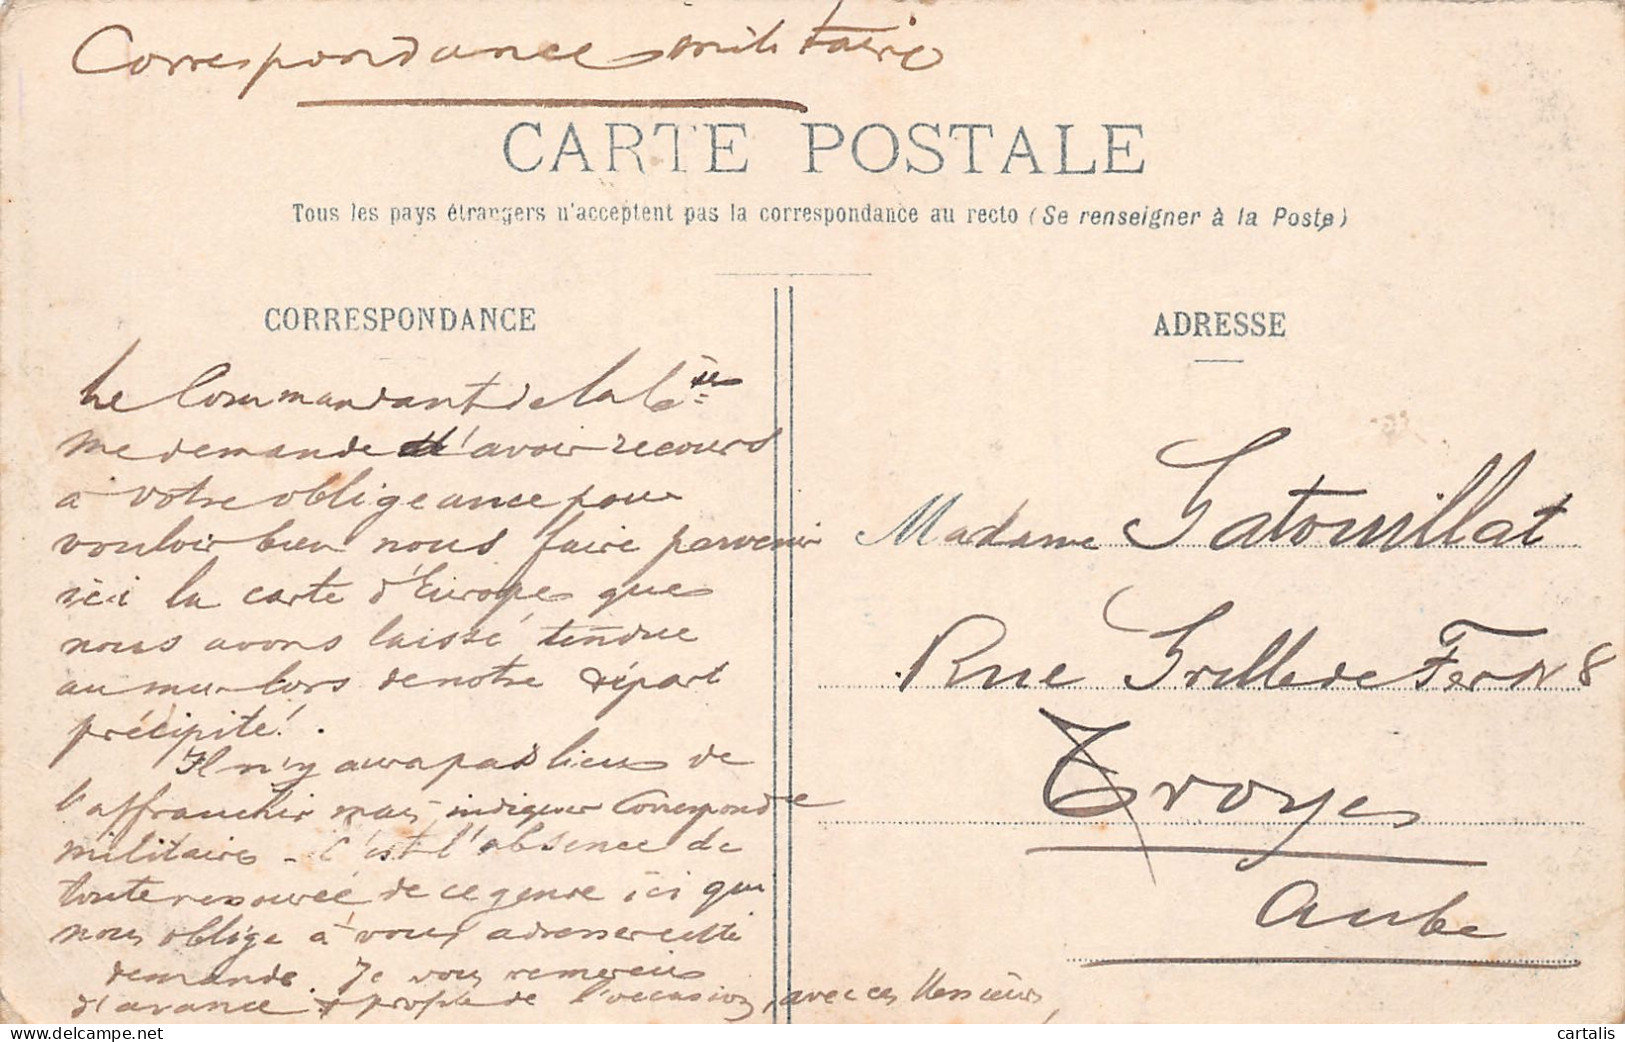 Correspondance militaire
CARTE POSTALE
Tous les pays étrangers n'acceptent pas la correspondance au recto (Se renseigner à la Poste)
CORRESPONDANCE
Le Commandant de la Cie
me demande d'avoir recours
à votre obligeance pour
vouloir bien nous faire parvenir
ici la carte d'Europe que
nous avons laissé tendue
au mur lors de notre départ
précipité!.
Il n'y aura pas lieu de
l'affranchir mais indiquer Correspondce
militaire - C'est l'absence de
toute ressource de ce genre ici qui
nous oblige à vous adresser cette
demande. Je vous remercie
d'avance & de l'occasion, avec ces Messieurs,
ADRESSE
Madame Gatouillat
Rue Grille de Fer No 8
Troyes
Aube
cartalis